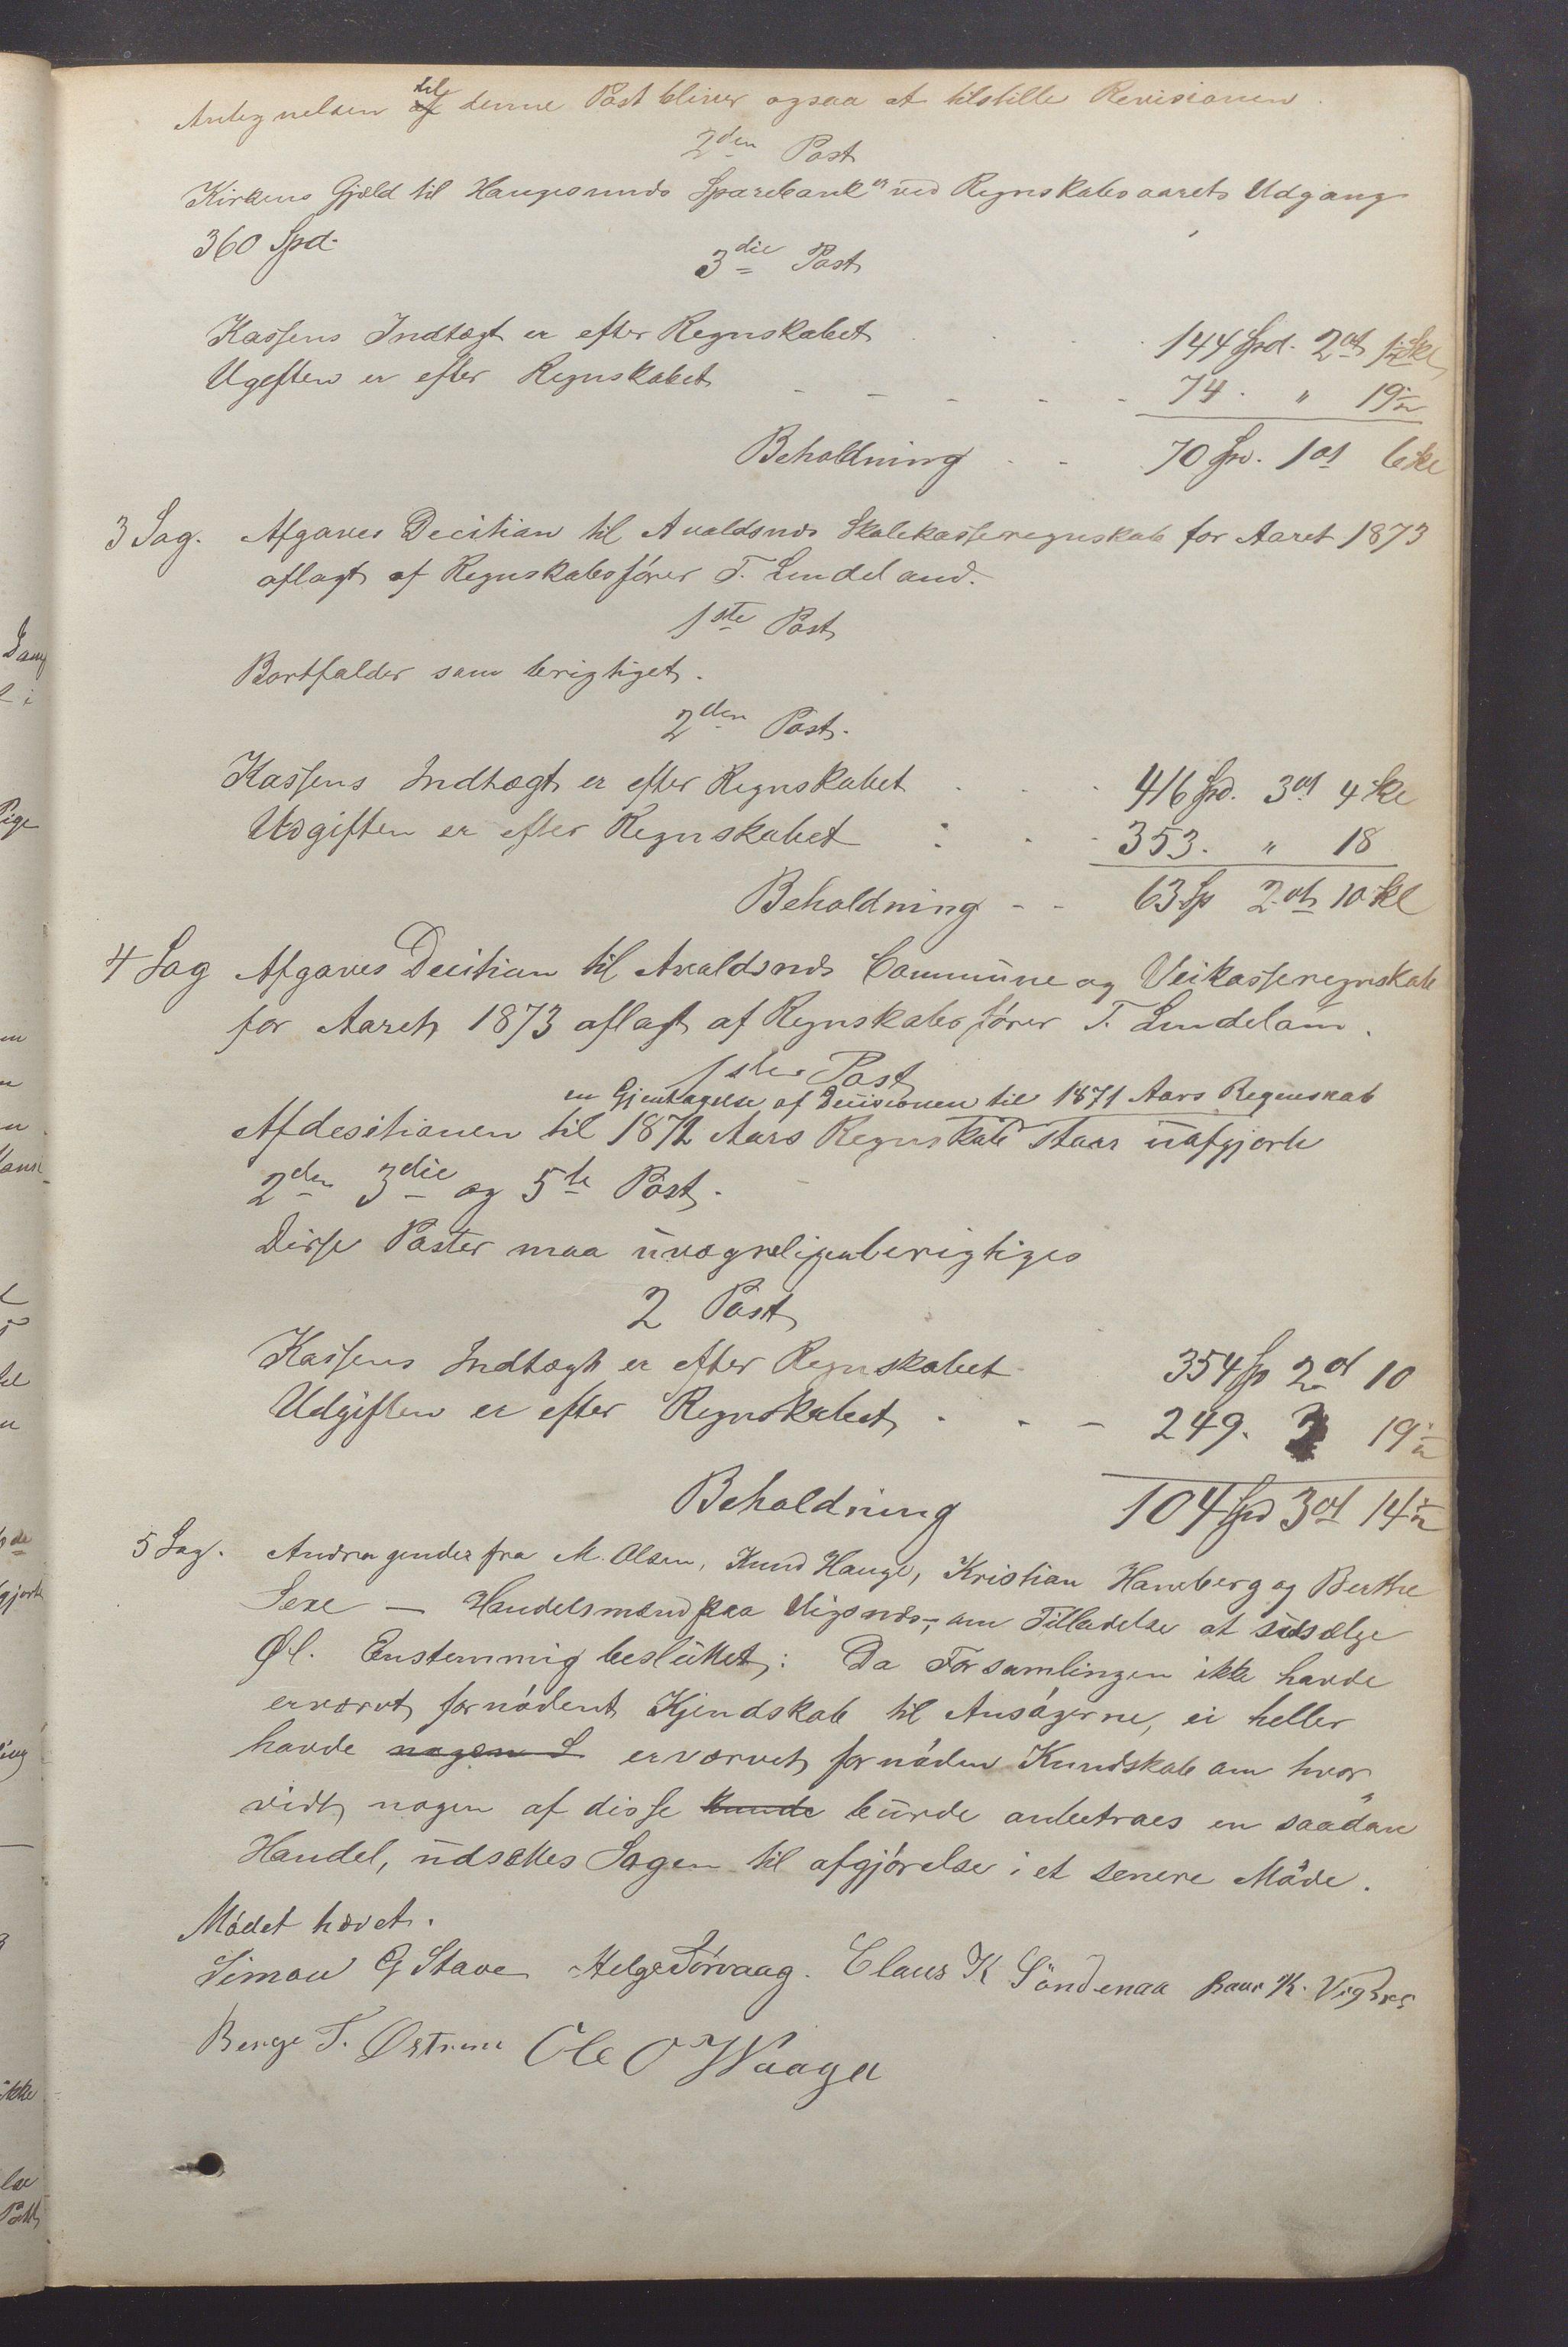 Antegnelsen til denne Post bliver ogsaa at tilstille Revisionen.
2den Post
Kirkens Gjæld til Haugesunds Sparebank er ved Regnskabsaarets Udgang
360 Spd.
3die Post
Kassens Indtægt er efter Regnskabet . . . . 144 Spd. 2ort 1½ Skl
Ugiften er efter Regnskabet - - - - - 74. " 19½
Beholdning - - 70 Spd. 1ort 6 Skl
3 Sag. Afgaves Decition til Avaldsnds Skolekasseregnskab for Aaret 1873
aflagt af Regnskabsfører T. Lindeland.
1ste Post
Bortfalder som berigtiget.
2den Post.
Kassens Indtægt er efter Regnskabet . . . 416 Spd. 3ort 4 Skl
Udgiften er efter Regnskabet . . . 353. " 18
Beholdning - - 63 Sp 2ort 10 Skl
4 Sag Afgaves Decition til Avaldsnds Commune og Veikasseregnskab
for Aaret 1873 aflagt af Regnskabsfører T. Lindelan.
1ste Post
en Gjentagelse af Decisionen til 1871 Aars Regnskab
Af desitionen til 1872 Aars Regnskab staar uafgjorte
2den 3die og 5te Post.
Disse Poster maa uvægreligen berigtiges
2 Post
Kassens Indtægt er efter Regnskabet 354 Sp 2ort 10
Udgiften er efter Regnskabet . . - 249. 3 19½
Beholdning 104 Spd 3ort 14½
5 Sag. Andragender fra M. Olsen, Knud Hauge, Kristian Hamberg og Berthe
Sexe — Handelsmænd paa Vigsnds—, om Tilladelse at udsælge
Øl. Enstemmig besluttet: Da Forsamlingen ikke havde
ervœrvt fornødent Kjendskab til Ansøgerne, ei heller
havde nogen S erværvet fornøden Kundskab om hvor
vidt nogen af disse kunde burde anbetroes en saadan
Handel, udsættes Sagen til afgjørelse i et senere Møde.
Mødet hævet.
Simon G Stave Helge Sørvaag. Claus K Söndenaa Baar K. Vigsnes
Berge T. Østrem Ole O Waage